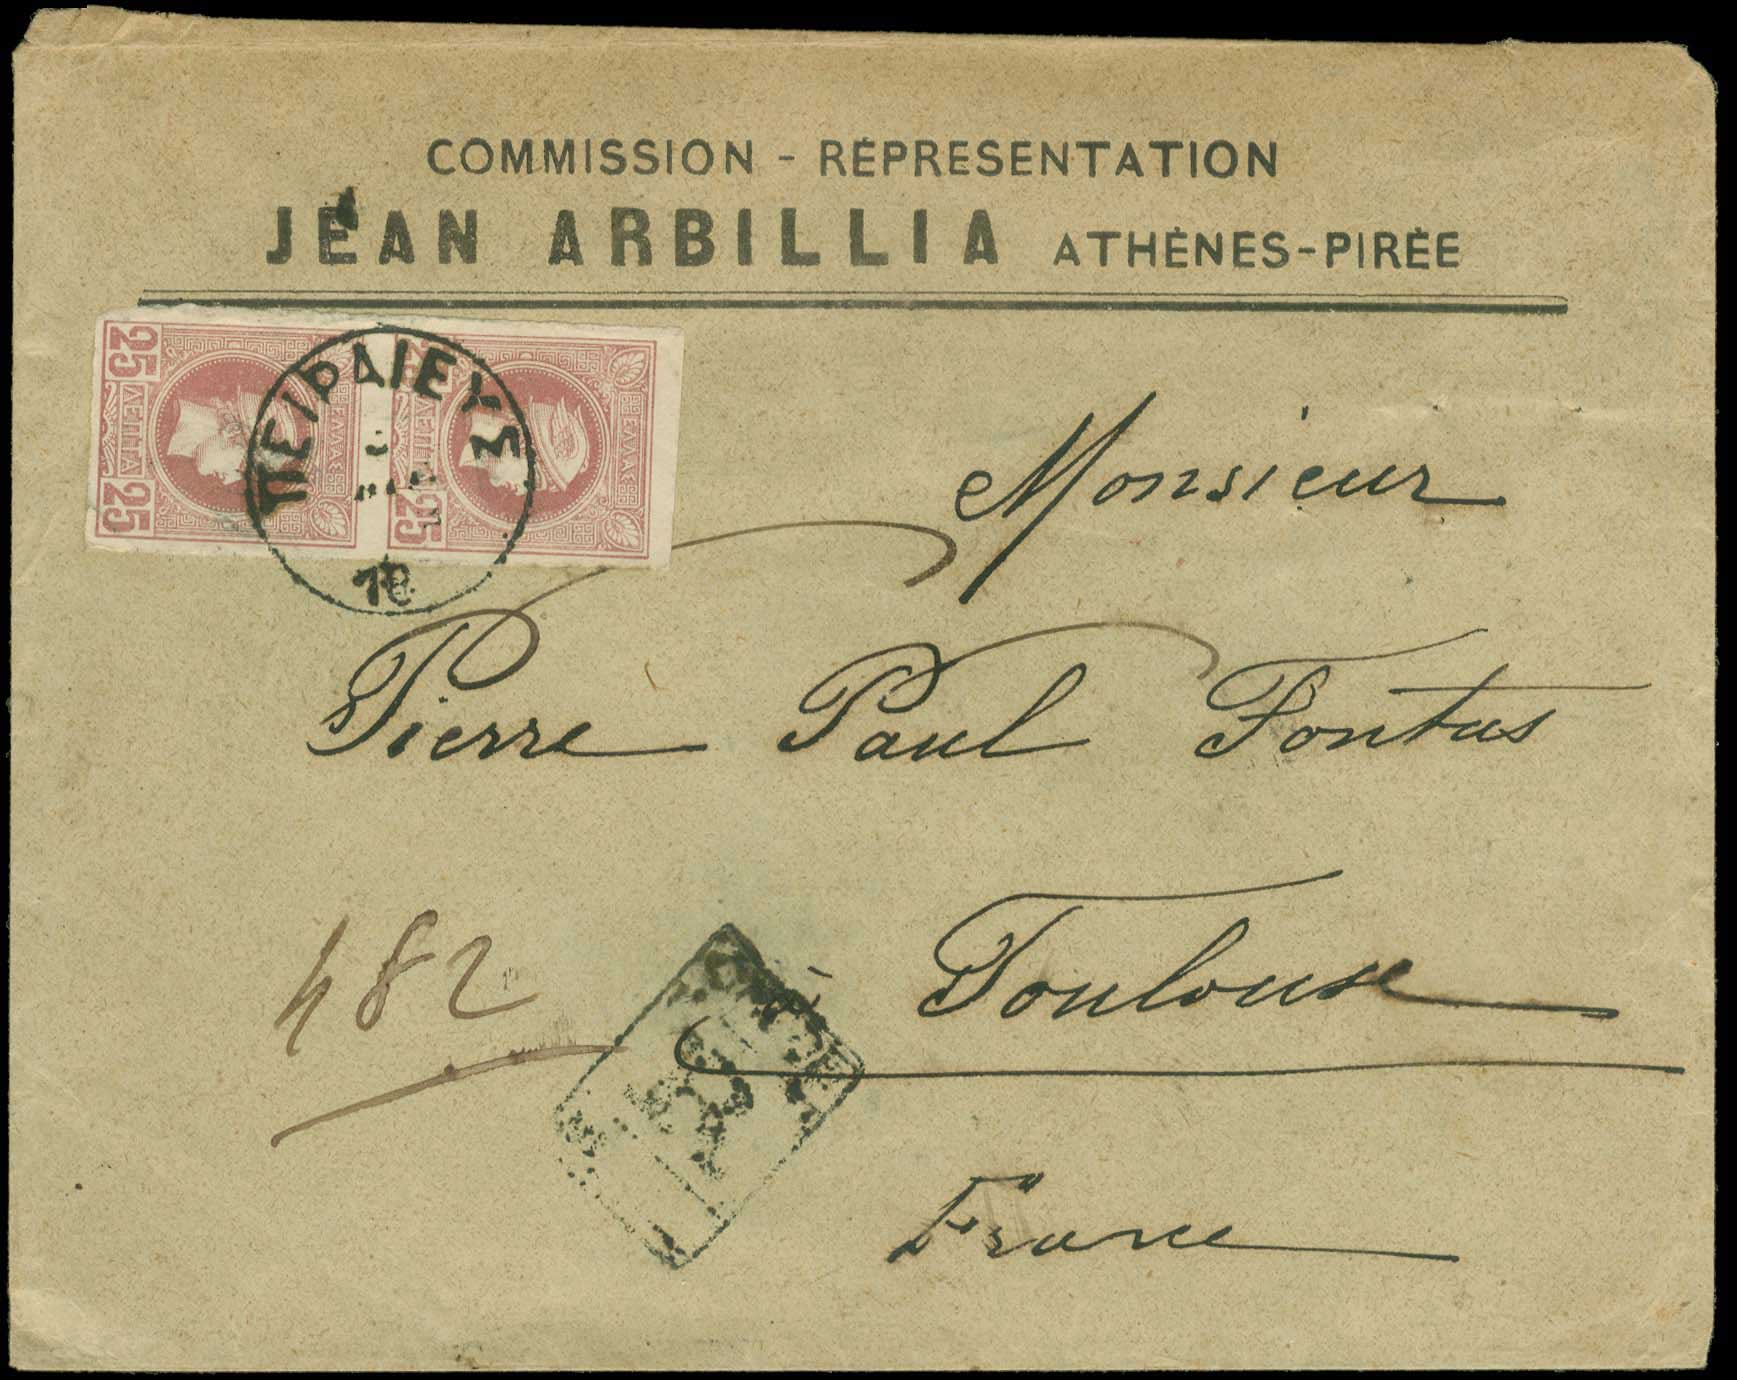 COMMISSION - REPRÉSENTATION
JEAN ARBILLIA ATHÈNES-PIRÉE
25 ΛΕΠΤΑ 25
ΕΛΛΑΣ
25 ΛΕΠΤΑ 25
ΕΛΛΑΣ
ΠΕΙΡΑΙΕΥΣ
Monsieur
Pierre Paul Fontas
482
à Toulouse
France